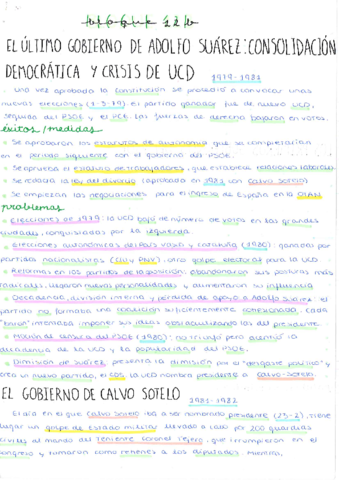 BLOQUE 12 b
EL ÚLTIMO GOBIERNO DE ADOLFO SUÁREZ: CONSOLIDACIÓN
DEMOCRÁTICA Y CRISIS DE UCD 1979-1981
Una vez aprobada la Constitución se procedió a convocar unas
nuevas elecciones (1-3-79). El partido ganador fue de nuevo UCD,
seguida del PSOE y el PCE. Las fuerzas de derecha bajaron en votos.
éxitos/medidas
Se aprobaron los estatutos de autonomía que se completarían
en el período siguiente con el gobierno del PSOE.
Se aprueba el estatuto de trabajadores, que establece relaciones laborales
Se redacta la ley del divorcio (aprobada en 1981 con Calvo Sotelo)
Se empiezan las negociaciones para el ingreso de España en la OTAN
problemas
Elecciones de 1979: la UCD bajó de número de votos en las grandes
ciudades, conquistadas por la izquierda.
Elecciones autonómicas del País Vasco y Cataluña (1980): ganadas por
partidos nacionalistas (CIU y PNV), otro golpe electoral para la UCD
Reformas en los partidos de la oposición: abandonaron sus posturas más
radicales, llegaron nuevas personalidades y aumentaron su influencia
Decadencia, división interna y pérdida de apoyo a Adolfo Suárez: el
partido no formaba una coalición suficientemente cohesionada. Cada
"barón" intentaba imponer sus ideas obstaculizando las del presidente.
Moción de censura del PSOE (1980): no triunfó pero acentuó la
decadencia de la UCD y la popularidad del PSOE.
Dimisión de Suárez: presenta la dimisión por el "desgaste político" y
crea un nuevo partido, el CDS. La UCD nombra presidente a Calvo-Sotelo.
EL GOBIERNO DE CALVO SOTELO 1981-1982
El día en el que Calvo Sotelo iba a ser nombrado presidente (23-2), tiene
lugar un golpe de Estado militar llevado a cabo por 200 guardias
civiles al mando del teniente coronel Tejero, que irrumpieron en el
congreso y tomaron como rehenes a los diputados. Mientras,